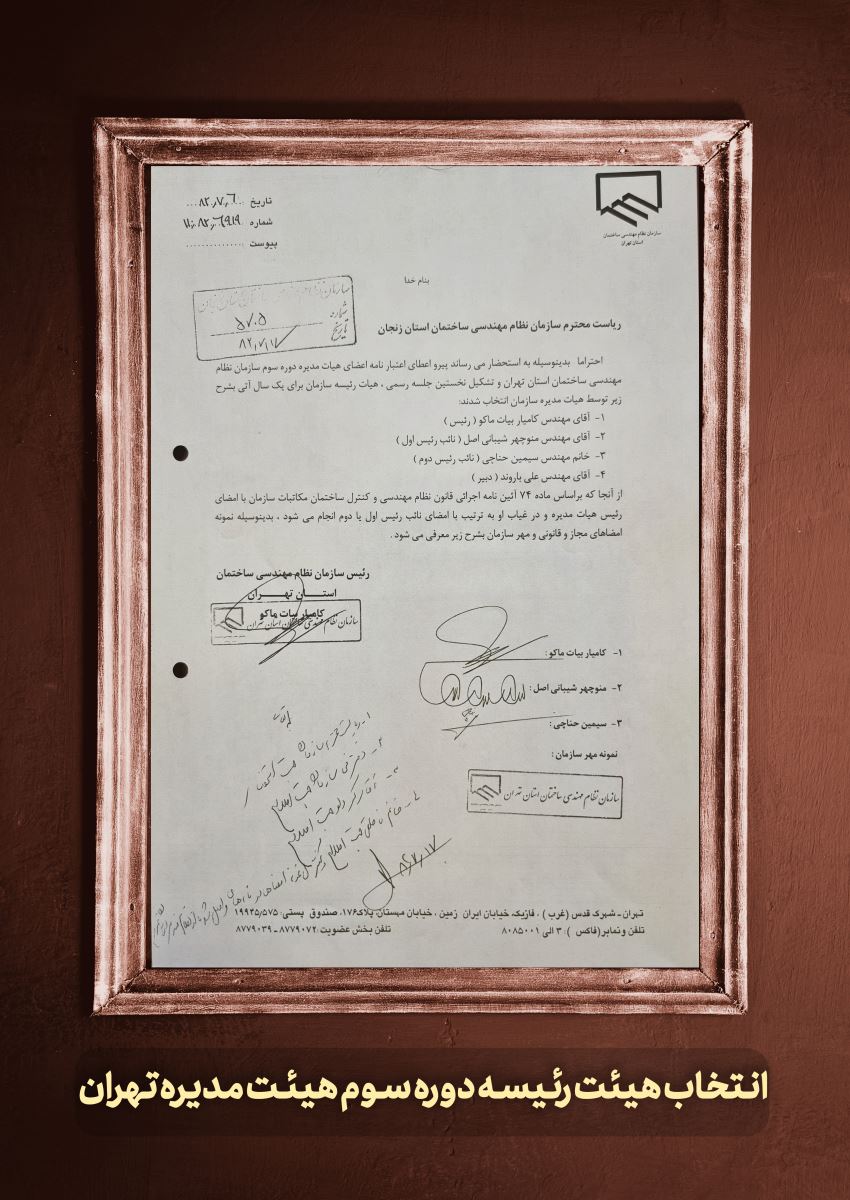 سازمان نظام مهندسی ساختمان
استان تهران
تاریخ ۸۲,۷,۶
شماره
پیوست
بنام خدا
شماره ۵۷۰۵
تاریخ ۸۲/۷/۱۷
ریاست محترم سازمان نظام مهندسی ساختمان استان زنجان
احتراما بدینوسیله به استحضار می رساند پیرو اعطای اعتبار نامه اعضای هیات مدیره دوره سوم سازمان نظام
مهندسی ساختمان استان تهران و تشکیل نخستین جلسه رسمی ، هیات رئیسه سازمان برای یک سال آتی بشرح
زیر توسط هیات مدیره سازمان انتخاب شدند:
۱- آقای مهندس کامیار بیات ماکو ( رئیس )
۲- آقای مهندس منوچهر شیبانی اصل ( نائب رئیس اول )
۳- خانم مهندس سیمین حناچی ( نائب رئیس دوم )
۴- آقای مهندس علی باروند ( دبیر )
از آنجا که براساس ماده ۷۴ آئین نامه اجرائی قانون نظام مهندسی و کنترل ساختمان مکاتبات سازمان با امضای
رئیس هیات مدیره و در غیاب او به ترتیب با امضای نائب رئیس اول یا دوم انجام می شود ، بدینوسیله نمونه
امضاهای مجاز و قانونی و مهر سازمان بشرح زیر معرفی می شود .
رئیس سازمان نظام مهندسی ساختمان
استـــان تهـــران
کامیار بیات ماکو
سازمان نظام مهندسی ساختمان استان تهران
۱- کامیار بیات ماکو:
۲- منوچهر شیبانی اصل :
۳- سیمین حناچی :
نمونه مهر سازمان :
سازمان نظام مهندسی ساختمان استان تهران
تهران ـ شهرک قدس (غرب ) ، فازیک، خیابان ایران زمین ، خیابان مهستان پلاک۱۷۶، صندوق پستی: ۱۹۹۴۵/۵۷۵
تلفن و نمابر(فاکس ): ۳ الی ۸۰۸۵۰۰۱ تلفن بخش عضویت:۸۷۷۹۰۷۲ ـ ۸۷۷۹۰۳۹
انتخاب هیئت رئیسه دوره سوم هیئت مدیره تهران